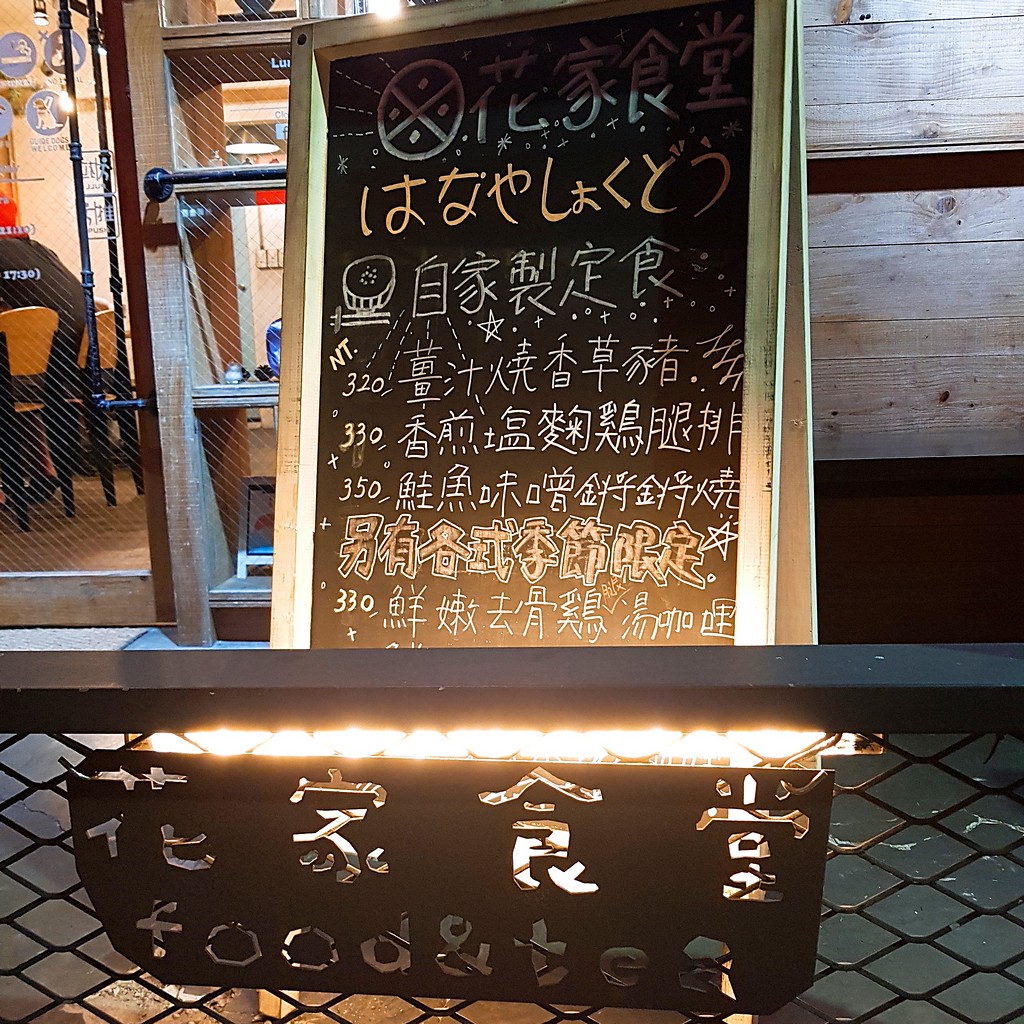 花家食堂
はなやしょくどう
自家製定食
NT.
320 薑汁燒香草豬.
330 香煎塩麴鷄腿排
350 鮭魚味噌鏘鏘燒
另有各式季節限定.
330 鮮嫩去骨鷄湯咖哩
花家食堂
food&tea
GUIDE DOGS WELCOME
17:30)